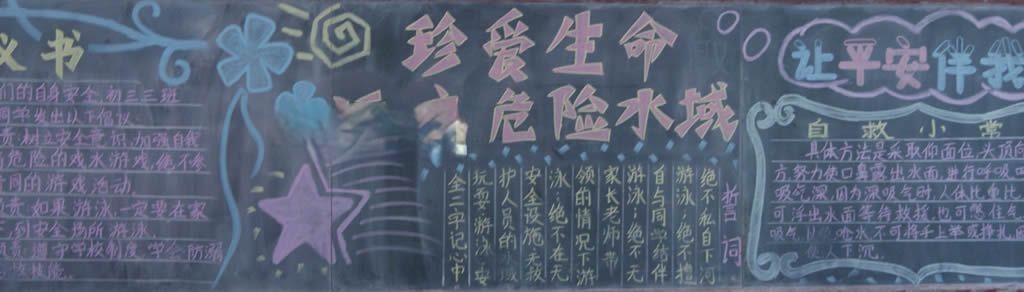 议书
们的自身安全,初三三班
同学发出以下倡议
树立安全意识,加强自我
危险的戏水游戏,绝不参
同的游戏活动.
如果游泳,一定要在家
到安全场所游泳.
遵守学校制度,学会防溺
珍爱生命
危险水域
誓同
绝不私自下河
游泳;绝不擅
自与同学结伴
游泳;绝不无
家长老师带
领的情况下游
泳;绝不在无
安全设施,无救
护人员的水域
玩耍、游泳,安
全二字记心中
让平安伴我
自救小常
具体方法是采取仰面位,头顶向
方,努力使口鼻露出水面,进行呼吸,呼
吸气深,因为深吸气时,人体比重比
可浮出水面等待救援,也可憋住气
呛水,不可将手上举或挣扎,
下沉.